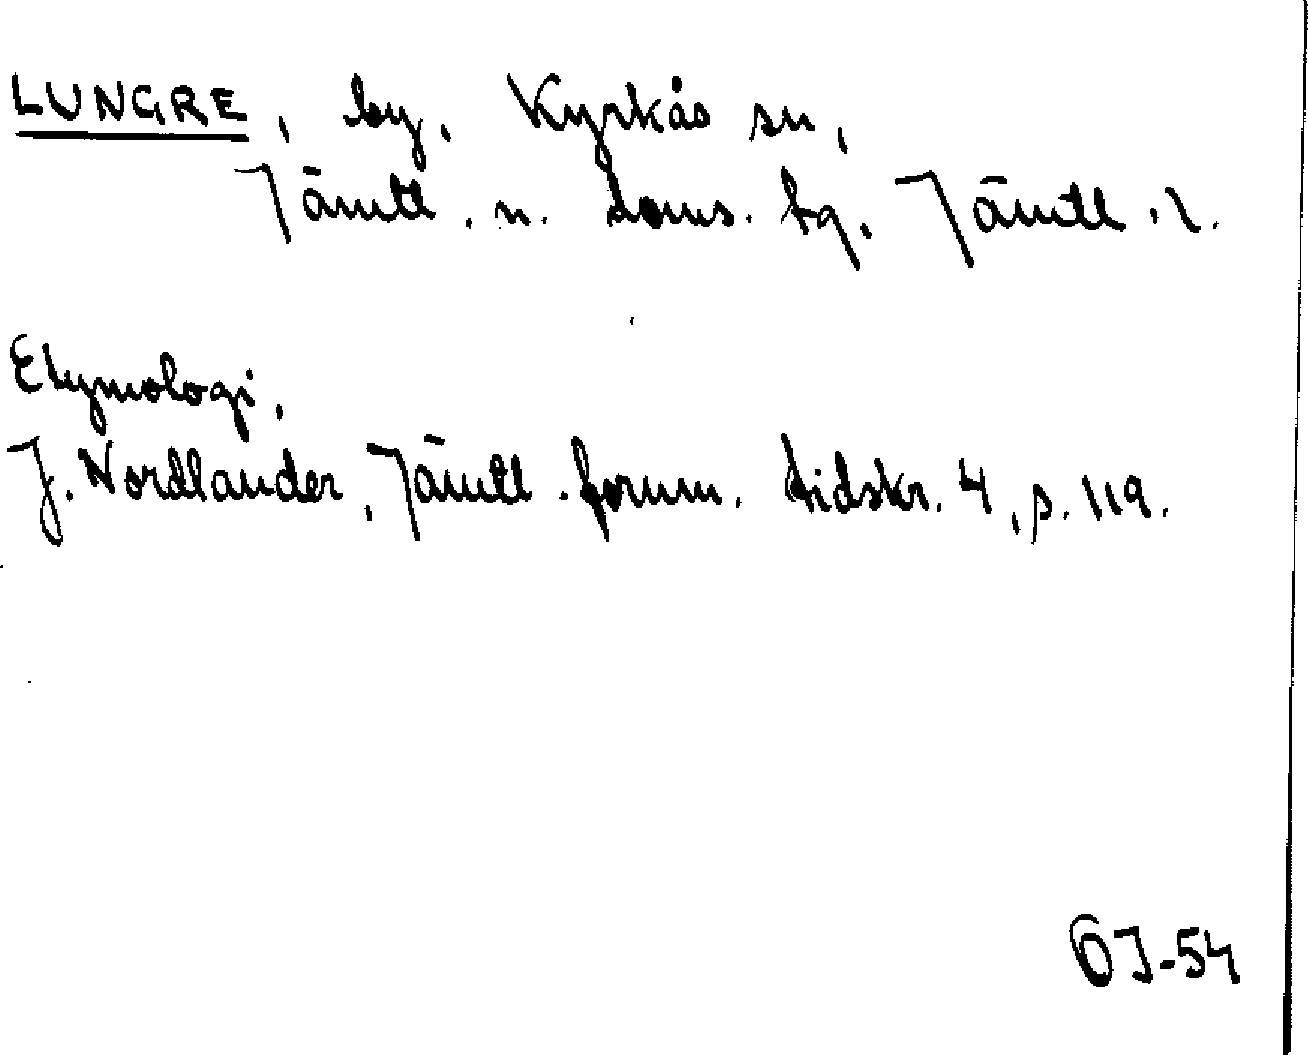 LUNGRE, by, Kyrkås sn,
Jämtl. n. doms. tg. Jämtl. l.
Etymologi,
J. Nordlander, Jämtl. fornm. tidskr. 4, s. 119.
ÖJ-54